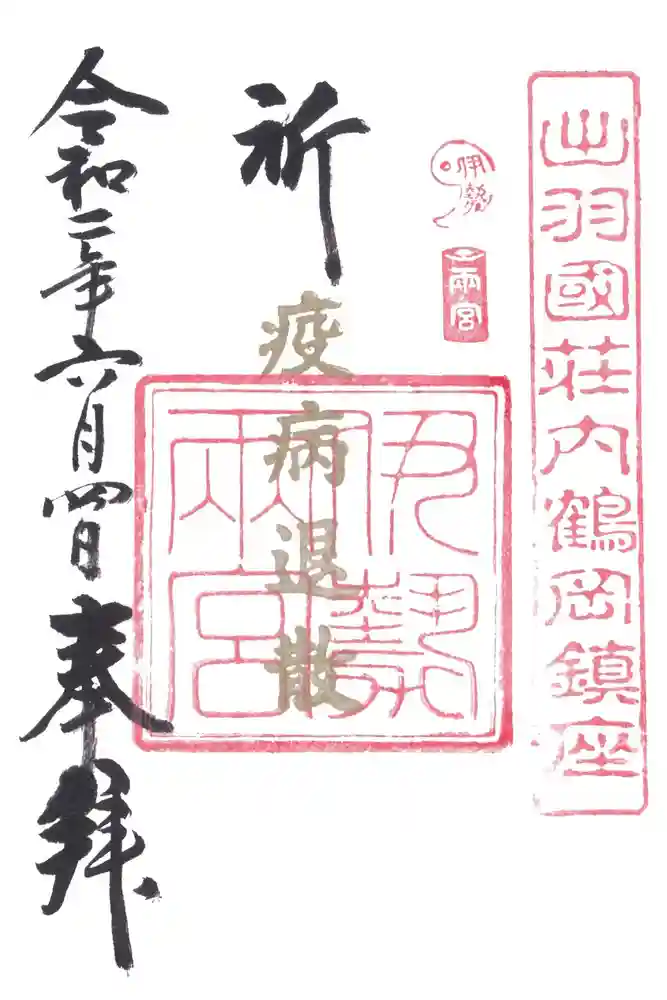 出羽國荘内鶴岡鎮座
伊勢
両宮
伊勢
両宮
祈
疫病退散
令和二年六月四日
奉拝